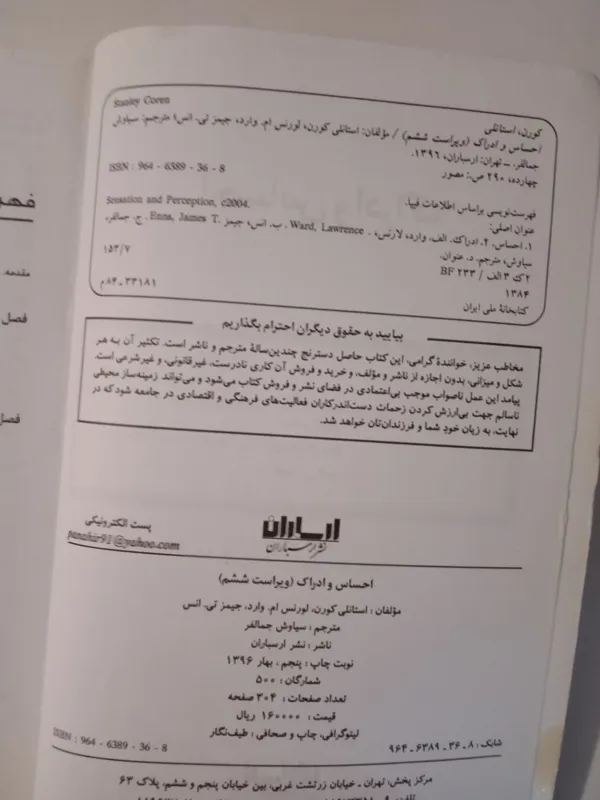 Stanley Coren
کورن، استانلی
احساس و ادراک (ویراست ششم) / مؤلفان: استانلی کورن، لورنس ام. وارد، جیمز تی. انس؛ مترجم: سیاوش
جمالفر. ــ تهران: ارسباران، ۱۳۹۶.
چهارده، ۲۹۰ ص.: مصور
ISBN : 964 - 6389 - 36 - 8
فهرست‌نویسی براساس اطلاعات فیپا.
عنوان اصلی:
Sensation and Perception, c2004.
۱. احساس. ۲. ادراک. الف. وارد، لارنس، . Ward, Lawrence . ب. انس، جیمز .Enna, James T . ج. جمالفر،
سیاوش، مترجم. د. عنوان.
۱۵۳/۷
۲ک ۳ الف / BF ۲۳۳
۱۳۸۴
۸۴-۳۳۱۸۱م
کتابخانۀ ملی ایران
بیایید به حقوق دیگران احترام بگذاریم
مخاطب عزیز، خوانندۀ گرامی، این کتاب حاصل دسترنج چندین‌سالۀ مترجم و ناشر است. تکثیر آن به هر
شکل و میزانی، بدون اجازه از ناشر و مؤلف، و خرید و فروش آن کاری نادرست، غیرقانونی، و غیرشرعی است.
پیامد این عمل ناصواب موجب بی‌اعتمادی در فضای نشر و فروش کتاب می‌شود و می‌تواند زمینه‌ساز محیطی
ناسالم جهت بی‌ارزش کردن زحمات دست‌اندرکاران فعالیت‌های فرهنگی و اقتصادی در جامعه شود که در
نهایت، به زیان خودِ شما و فرزندان‌تان خواهد شد.
ارسباران
نشر ارسباران
پست الکترونیکی
panahir91@yahoo.com
احساس و ادراک (ویراست ششم)
مؤلفان : استانلی کورن، لورنس ام. وارد، جیمز تی. انس
مترجم : سیاوش جمالفر
ناشر : نشر ارسباران
نوبت چاپ : پنجم ، بهار ۱۳۹۶
شمارگان : ۵۰۰
تعداد صفحات : ۳۰۴ صفحه
قیمت : ۱۶۰۰۰۰ ریال
لیتوگرافی، چاپ و صحافی : طیف‌نگار
ISBN : 964 - 6389 - 36 - 8
شابک : ۸ - ۳۶ - ۶۳۸۹ - ۹۶۴
مرکز پخش، تهران ـ خیابان زرتشت غربی، بین خیابان پنجم و ششم، پلاک ۶۳
فهر
مقدمه.
فصل
فصل